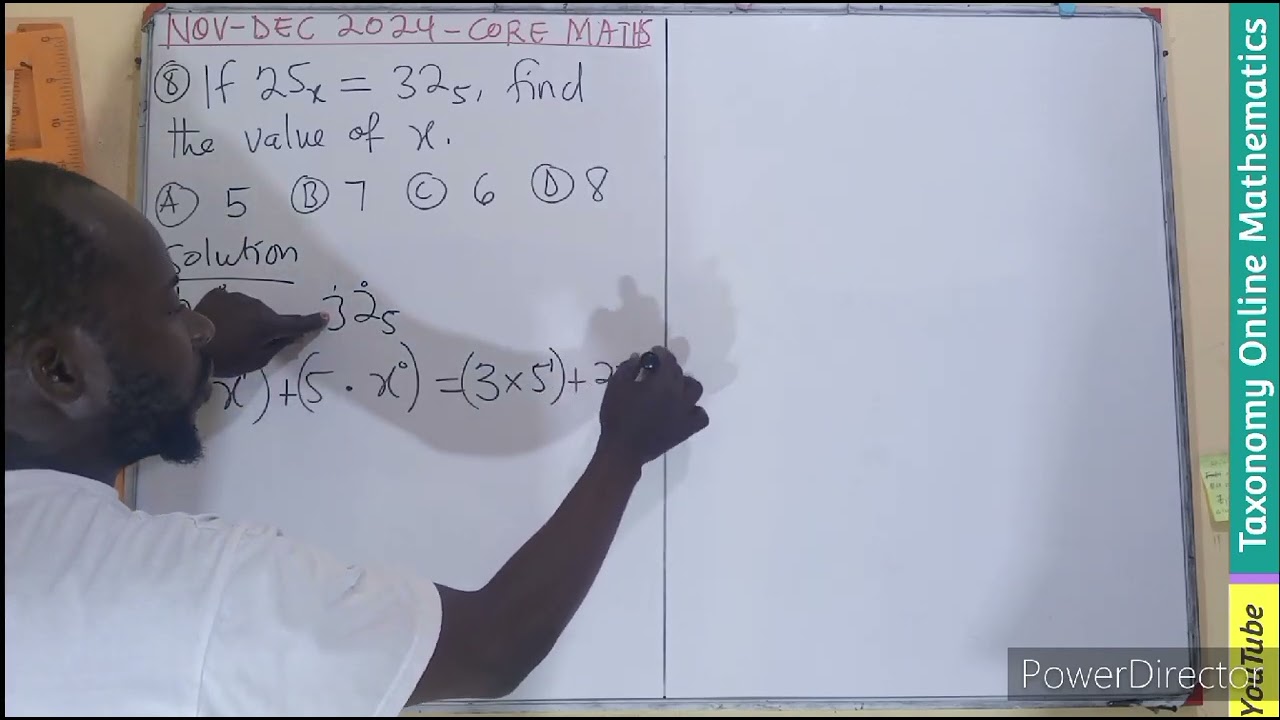 NOV-DEC 2024-CORE MATHS
⑧ If 25ₓ = 32₅, find
the value of x.
Ⓐ 5 Ⓑ 7 Ⓒ 6 Ⓓ 8
Solution
32₅
x¹) + (5 · x⁰) = (3 × 5¹) + 2
Taxonomy Online Mathematics
YouTube
PowerDirector